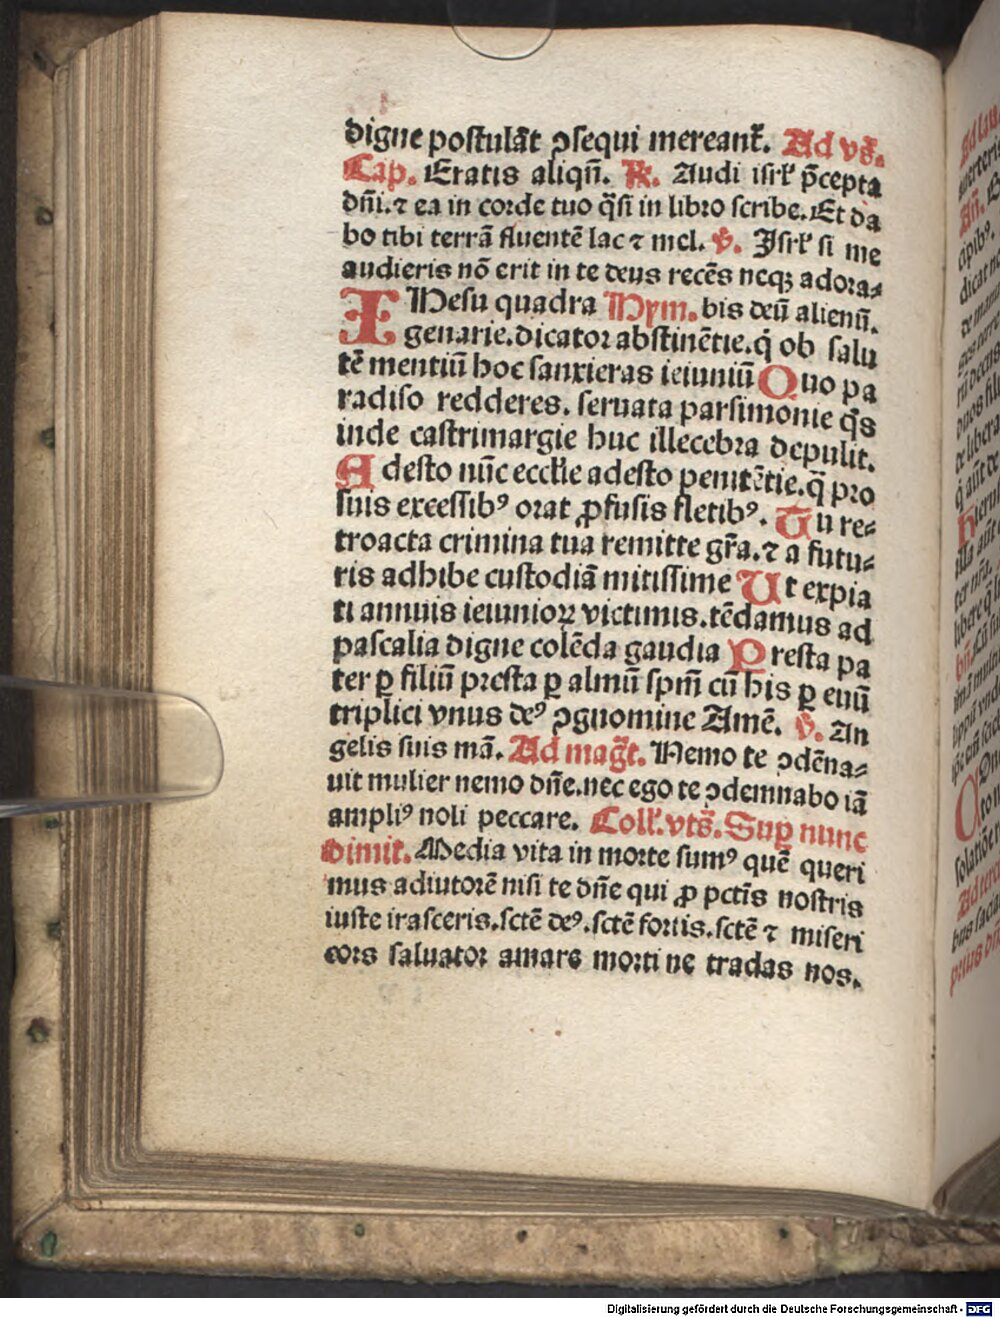 digne postulāt ꝯsequi mereant̄. Ad vs̄.
Cap. Eratis aliqn̄. R̄. Audi isrl̄ p̄cepta
dn̄i.⁊ ea in corde tuo q̄si in libro scribe. Et da
bo tibi terrā fluentē lac ⁊ mel. v̄. Isrl̄ si me
audieris nō erit in te deus recēs neqꝫ adora⸗
IHesu quadra Hym. bis deū alienū.
genarie.dicator abstinētie.q̄ ob salu
tē mentiū hoc sanxieras ieiuniū Quo pa
radiso redderes. seruata parsimonie q̄s
inde castrimargie huc illecebra depulit.
Adesto nūc eccl̄ie adesto penitētie.q̄ pro
suis excessibꝰ orat ꝓfusis fletibꝰ. Tu re⸗
troacta crimina tua remitte gr̄a.⁊ a futu⸗
ris adhibe custodiā mitissime Ut expia
ti annuis ieiunioꝝ victimis.tēdamus ad
pascalia digne colēda gaudia Presta pa
ter ꝑ filiū presta ꝑ almū spm̄ cū his ꝑ euū
triplici vnus deꝰ ꝯgnomine Amē. v̄. An
gelis suis mā. Ad maḡt. Nemo te ꝯdēna⸗
uit mulier nemo dn̄e.nec ego te ꝯdemnabo iā
ampliꝰ noli peccare. Coll̄.vts̄. Suꝑ nunc
dimit̄. Media vita in morte sumꝰ quē queri
mus adiutorē nisi te dn̄e qui ꝓ pctīs nostris
iuste irasceris.sctē deꝰ.sctē fortis.sctē ⁊ miseri
cors saluator amare morti ne tradas nos.
Digitalisierung gefördert durch die Deutsche Forschungsgemeinschaft - DFG